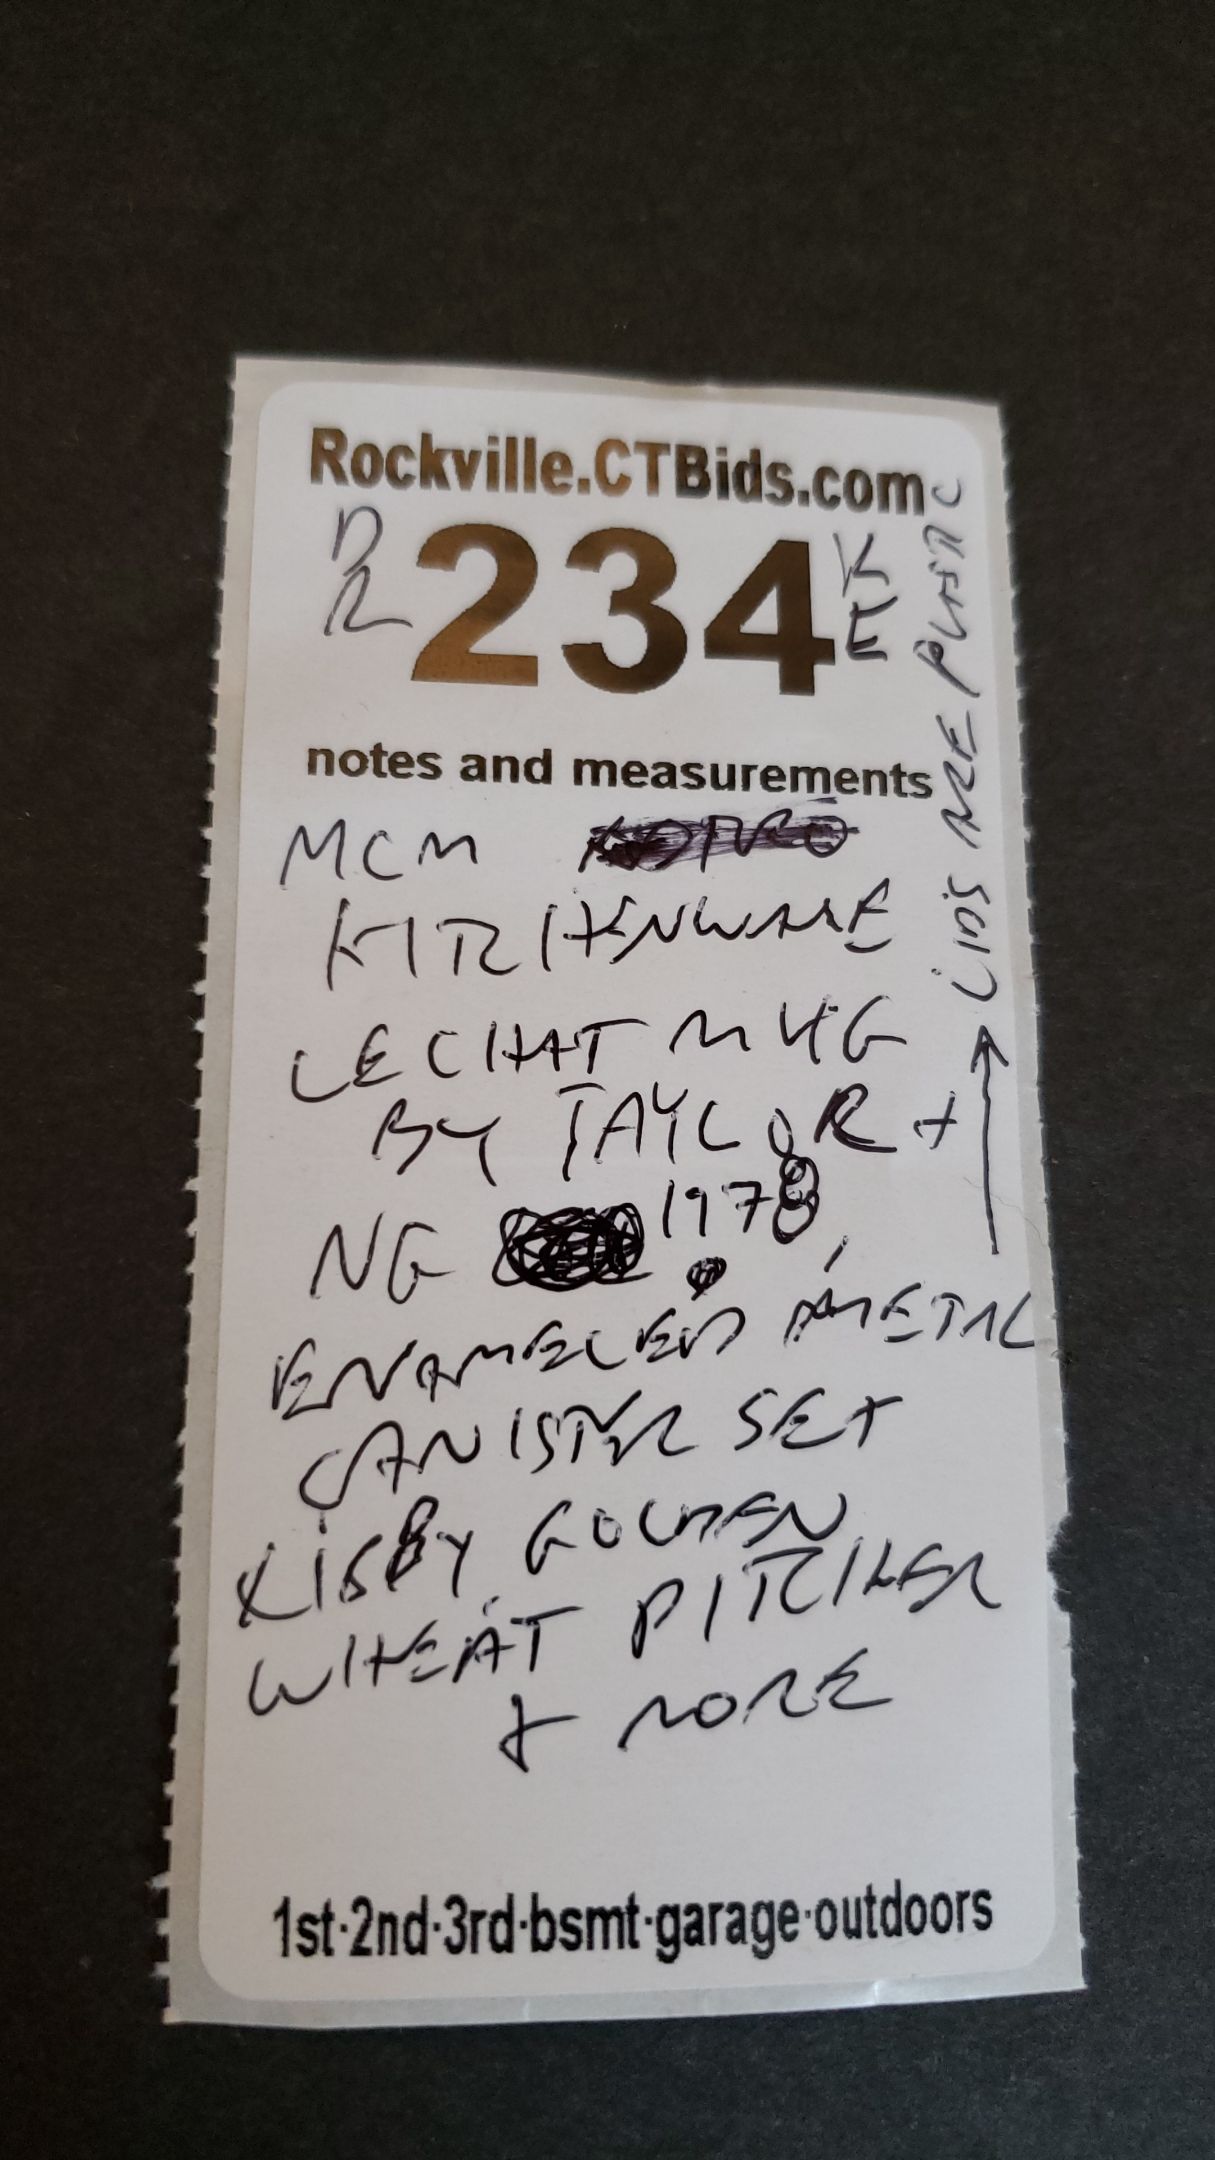 Rockville.CTBids.com
DR 234 KE
notes and measurements
MCM
KITCHENWARE
LE CHAT MUG
BY TAYLOR +
NG 1978
ENAMELED METAL
CANISTER SET
WHEAT PITCHER
+ MORE
LIDS ARE PLASTIC
1st·2nd·3rd·bsmt·garage·outdoors